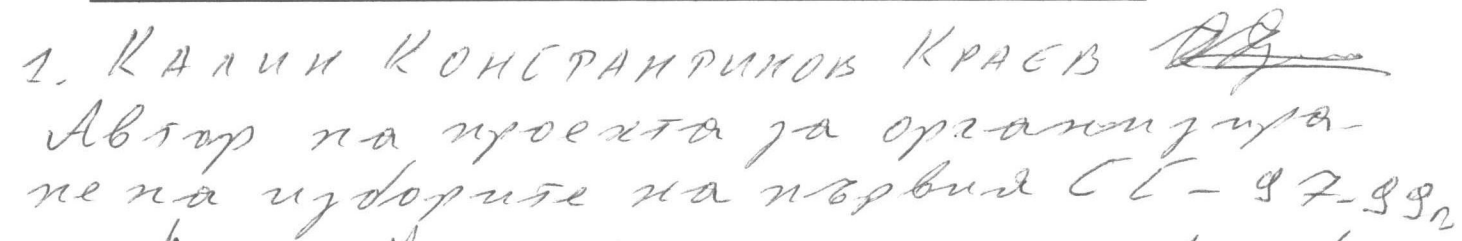 1. КАЛИН КОНСТАНТИНОВ КРАЕВ
Автор на проекта за организира-
не на изборите на първия СС - 97-99г